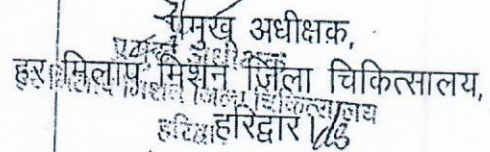 प्रमुख अधीक्षक,
हर मिलाप मिशन जिला चिकित्सालय,
हरिद्वार